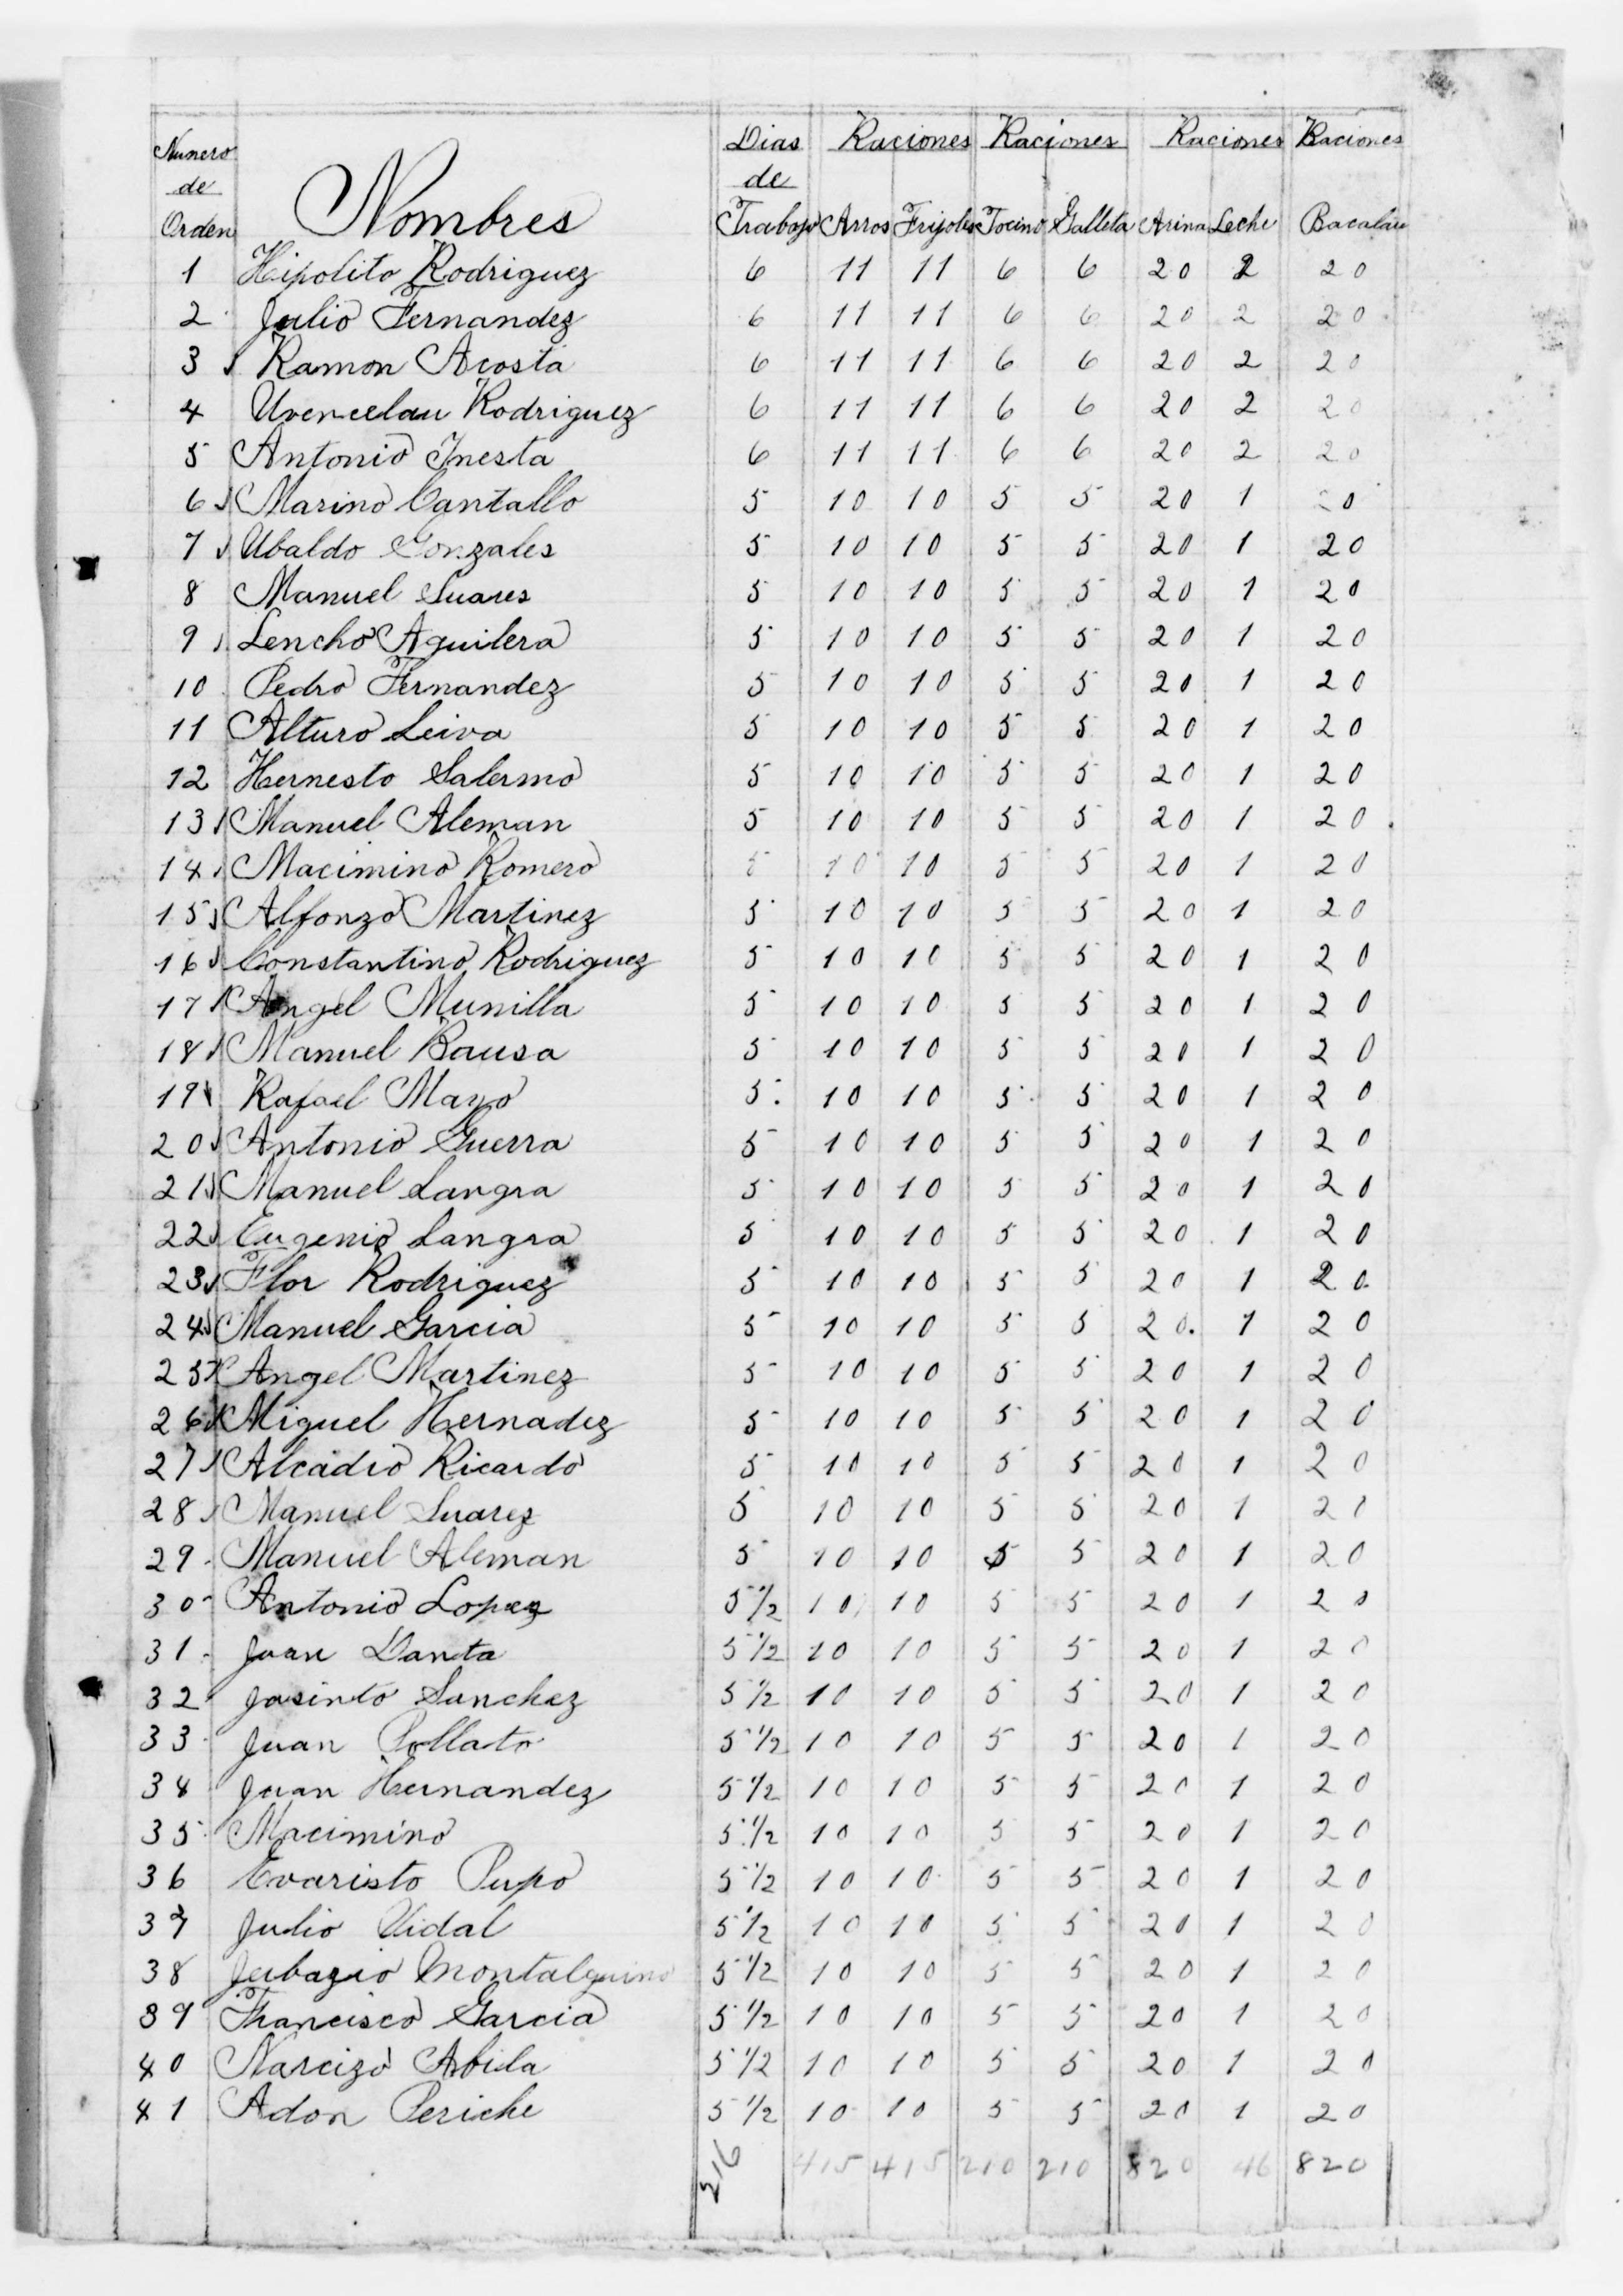 Numero de Orden Nombres Dias de Trabajo Raciones Raciones Raciones Raciones
Arros Frijoles Tocino Galleta Arina Leche Bacalau
1 Hipolito Rodriguez 6 11 11 6 6 20 2 20
2 Julio Fernandez 6 11 11 6 6 20 2 20
3 Ramon Acosta 6 11 11 6 6 20 2 20
4 Uvencelau Rodriguez 6 11 11 6 6 20 2 20
5 Antonio Inesta 6 11 11 6 6 20 2 20
6 Marino Cantallo 5 10 10 5 5 20 1 20
7 Ubaldo Gonzales 5 10 10 5 5 20 1 20
8 Manuel Suares 5 10 10 5 5 20 1 20
9 Lencho Aguilera 5 10 10 5 5 20 1 20
10 Pedro Fernandez 5 10 10 5 5 20 1 20
11 Alturo Leiva 5 10 10 5 5 20 1 20
12 Hernesto Salermo 5 10 10 5 5 20 1 20
13 Manuel Aleman 5 10 10 5 5 20 1 20
14 Macimino Romero 5 10 10 5 5 20 1 20
15 Alfonzo Martinez 5 10 10 5 5 20 1 20
16 Constantino Rodriguez 5 10 10 5 5 20 1 20
17 Angel Munilla 5 10 10 5 5 20 1 20
18 Manuel Bausa 5 10 10 5 5 20 1 20
19 Rafael Mayo 5 10 10 5 5 20 1 20
20 Antonio Guerra 5 10 10 5 5 20 1 20
21 Manuel Langra 5 10 10 5 5 20 1 20
22 Eugenio Langra 5 10 10 5 5 20 1 20
23 Flor Rodriguez 5 10 10 5 5 20 1 20
24 Manuel Garcia 5 10 10 5 5 20 1 20
25 Angel Martinez 5 10 10 5 5 20 1 20
26 Miguel Hernadez 5 10 10 5 5 20 1 20
27 Alcadio Ricardo 5 10 10 5 5 20 1 20
28 Manuel Suarez 5 10 10 5 5 20 1 20
29 Manuel Aleman 5 10 10 5 5 20 1 20
30 Antonio Lopez 5 1/2 10 10 5 5 20 1 20
31 Juan Danta 5 1/2 10 10 5 5 20 1 20
32 Jasinto Sanchez 5 1/2 10 10 5 5 20 1 20
33 Juan Pollato 5 1/2 10 10 5 5 20 1 20
34 Juan Hernandez 5 1/2 10 10 5 5 20 1 20
35 Macimino 5 1/2 10 10 5 5 20 1 20
36 Evaristo Pupo 5 1/2 10 10 5 5 20 1 20
37 Julio Vidal 5 1/2 10 10 5 5 20 1 20
38 Montalguino 5 1/2 10 10 5 5 20 1 20
39 Francisco Garcia 5 1/2 10 10 5 5 20 1 20
40 Narcizo Abila 5 1/2 10 10 5 5 20 1 20
41 Adon Periche 5 1/2 10 10 5 5 20 1 20
216 415 415 210 210 820 46 820